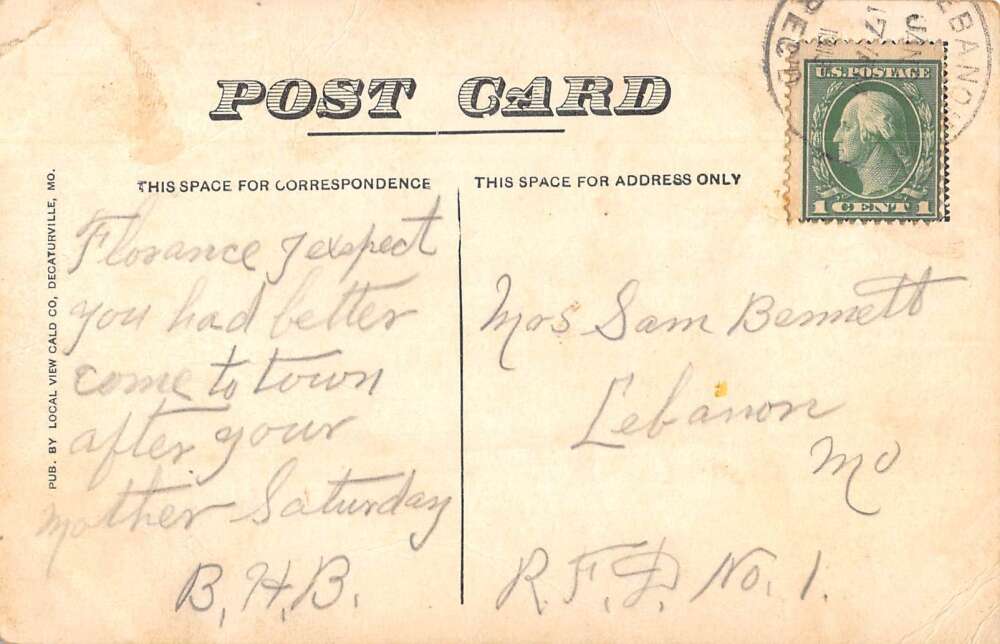 POST CARD
THIS SPACE FOR CORRESPONDENCE
THIS SPACE FOR ADDRESS ONLY
PUB. BY LOCAL VIEW CALD CO, DECATURVILLE, MO.
Florance I exspect
you had better
come to town
after your
mother Saturday
B. H. B.
Mrs Sam Bennett
Lebanon
Mo
R. F. D. No. 1.
U.S. POSTAGE
1 CENT 1
EBANO
JAN
17
REC'D